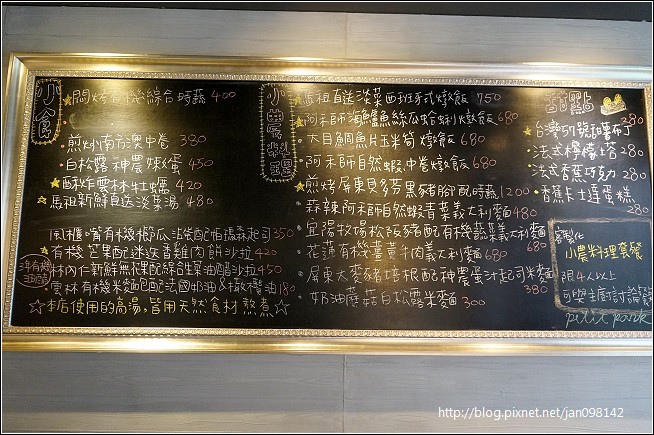 小食
悶烤有機綜合時蔬 400
煎炒南方澳中卷 380
白松露神農燉蛋 450
酥炸雲林牡蠣 420
馬祖新鮮直送淡菜湯 480
起司 350
有機芒果配迷迭香雞肉餅沙拉 420
林內仁新鮮無花果配綜合生菜油醋沙拉 450
雲林有機米麵包配法國奶油&橄欖油 180
☆本店使用的高湯,皆用天然食材熬煮☆
小農料理
馬祖直送淡菜西班牙式燉飯 750
阿禾師海鱺魚絲瓜蛤蜊燉飯 680
大目鯛魚片玉米筍燉飯 680
阿禾師自然蝦.中卷燉飯 680
煎烤屏東貝多芬黑豬腳配時蔬 1200
蒜辣阿禾師自然蝦青菜義大利麵 480
宜蘭牧場松阪豬配有機蔬葉義大利麵 680
花蓮有機薑黃牛肉義大利麵 680
屏東大麥豬培根配神農蛋汁起司米麵 380
奶油蘑菇白松露米麵 300
甜點
台灣51號甜薯布丁 280
法式檸檬塔 280
法式香蕉巧力 280
香蕉卡士達蛋糕 280
客製化
小農料理套餐
限4人以上
可與主廚討論
petit park
http://blog.pixnet.net/jan098142